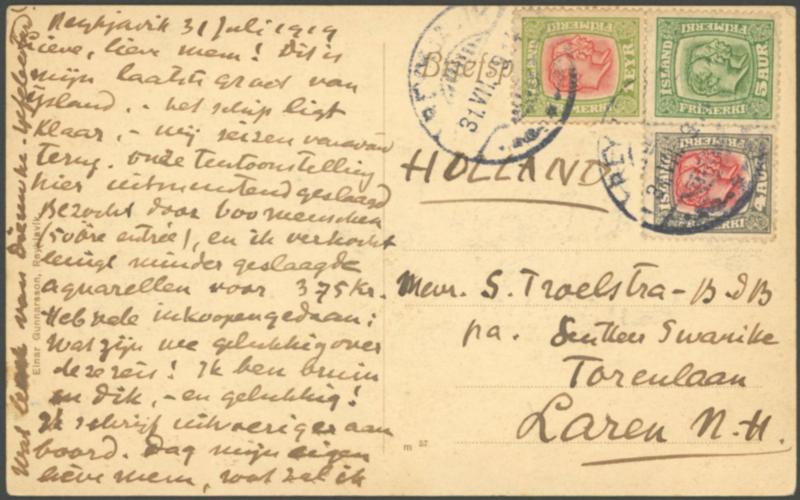 Reykjavik 31 Juli 1919
Lieve, lieve mem! Dit is
mijn laatste groet van
IJsland. - het schip ligt
klaar, - wij reizen vanavond
terug. Onze tentoonstelling
hier uitmuntend geslaagd
Bezocht door 600 menschen
(50 öre entrée), en ik verkocht
eenige minder geslaagde
aquarellen voor 375 Kr.
Heb vele inkoopen gedaan;
Wat zijn we gelukkig over
deze reis! Ik ben bruin
en dik, - en gelukkig!
Ik schrijf uitvoeriger aan
boord. Dag mijn eigen
lieve mem, wat zal ik
Einar Gunnarsson, Reykjavik
Briefsp
31.VII.19
ISLAND
FRIMERKI
EYR
ISLAND
5 AUR
FRIMERKI
ISLAND
4 AUR
FRIMERKI
HOLLAND
Mevr. S. Troelstra - B D B
pa. Swanike
Torenlaan
Laren N.H.
m 57